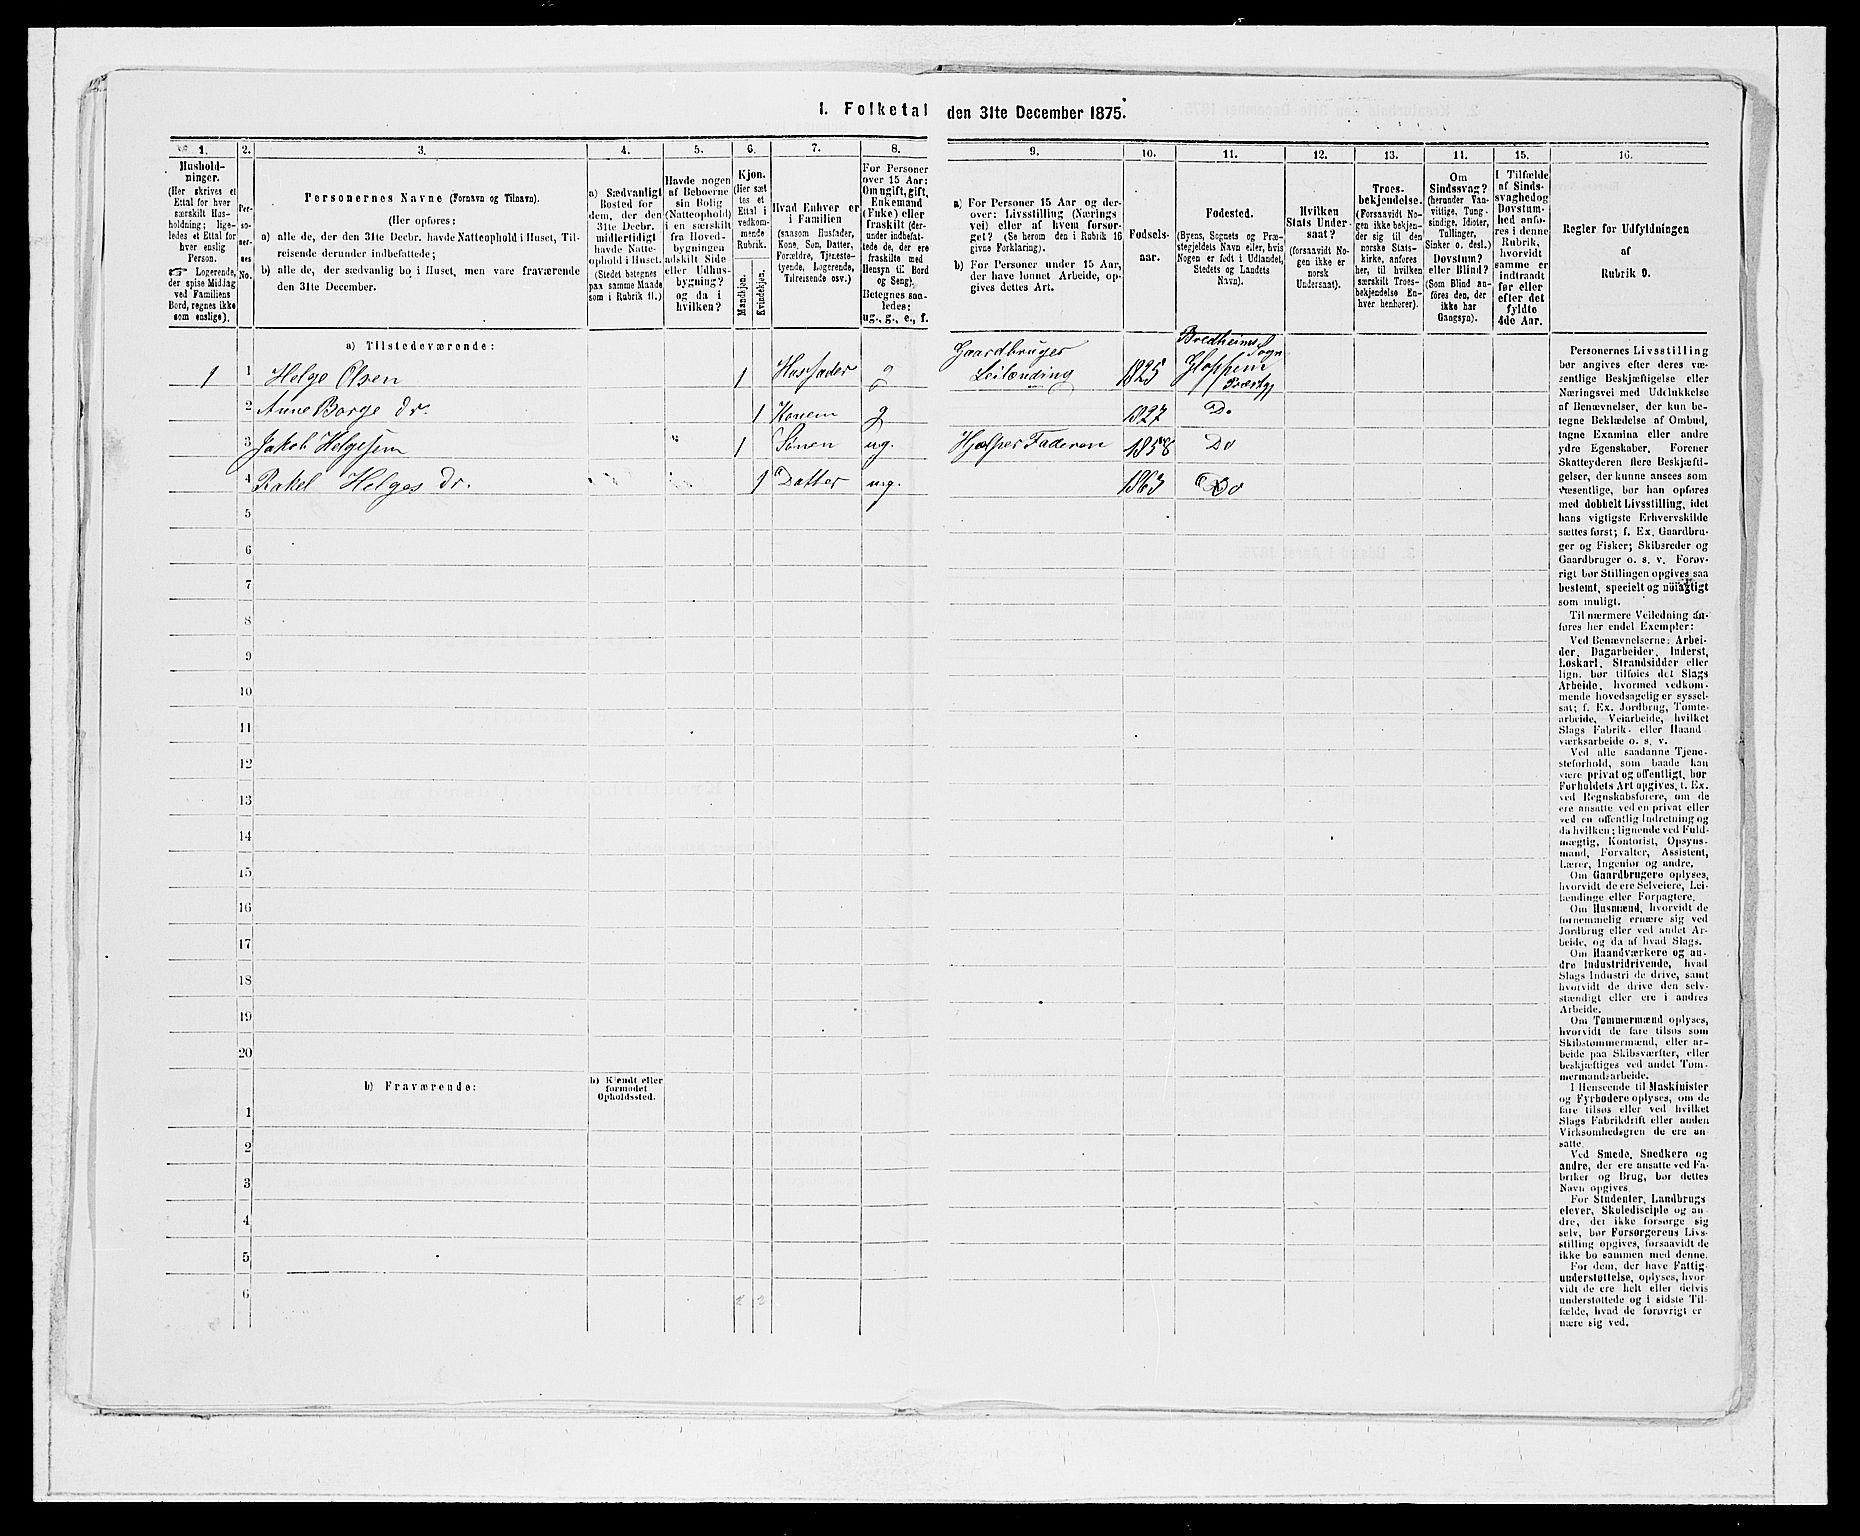 1. Folketal den 31te December 1875.
1.
2.
3.
4.
5.
6.
7.
8.
9.
10.
11.
12.
13.
14.
15.
16.
Hushold-
ninger.
(Her skrives et
Ettal for hver
særskilt Hus-
holdning; lige-
ledes et Ettal for
hver enslig
Person.
☞ Logerende,
der spise Middag
ved Familiens
Bord, regnes ikke
som enslige).
Per-
so-
ner-
nes
No.
Personernes Navne (Fornavn og Tilnavn).
(Her opføres:
a) alle de, der den 31te Decbr. havde Natteophold i Huset, Til-
reisende derunder indbefattede;
b) alle de, der sædvanlig bo i Huset, men vare fraværende
den 31te December.
a) Sædvanligt
Bosted for
dem, der den
31te Decbr.
midlertidigt
havde Natte-
ophold i Huset.
(Stedet betegnes
paa samme Maade
som i Rubrik 11.)
Havde nogen
af Beboerne
sin Bolig
(Natteophold)
i en særskilt
fra Hoved-
bygningen
adskilt Side
eller Udhus-
bygning?
og da i
hvilken?
Kjøn.
(Her sæt
tes et
Ettal i
vedkom-
mende
Rubrik.
Mandkjøn.
Kvindekjøn.
Hvad Enhver er
i Familien
(saasom Husfader,
Kone, Søn, Datter,
Forældre, Tjeneste-
tyende, Logerende,
Tilreisende osv.)
For Personer
over 15 Aar:
Om ugift, gift,
Enkemand
(Enke) eller
fraskilt (der-
under indbefat-
tede de, der ere
fraskilte med
Hensyn til Bord
og Seng).
Betegnes saa-
ledes:
ug., g., e., f.
a) For Personer 15 Aar og der-
over: Livsstilling (Nærings
vei) eller af hvem forsør-
get? (Se herom den i Rubrik 16
givne Forklaring).
b) For Personer under 15 Aar,
der have lønnet Arbeide, op-
gives dettes Art.
Fødsels-
aar.
Fødested.
(Byens, Sognets og Præ-
stegjeldets Navn eller, hvis
Nogen er født i Udlandet,
Stedets og Landets
Navn).
Hvilken
Stats Under-
saat?
(forsaavidt No-
gen ikke er
norsk
Undersaat).
Troes-
bekjendelse.
(Forsaavidt No-
gen ikke bekjen-
der sig til den
norske Stats-
kirke, anføres
her, til hvilken
særskilt Troes-
bekjendelse En-
hver henhører).
Om
Sindssvag?
(herunder Van-
vittige, Tung-
sindige, Idioter,
Tullinger,
Sinker o. desl.)
Døvstum?
eller Blind?
(Som Blind an-
føres den, der
ikke har
Gangsyn).
I Tilfælde
af Sinds-
svaghed og
Døvstum-
hed anfø-
res i denne
Rubrik,
hvorvidt
samme er
indtraadt
før eller
efter det
fyldte
4de Aar.
Regler for Udfyldningen
af
Rubrik 9.
a) Tilstedeværende:
1 1 Helge Olsen 1 Husfader g Gaardbruger Leilænding 1825 Bredheims Sogn Gloppens Præstg
2 Anne Børge dr. 1 Konen g 1827 Do
3 Jakob Helgesen " 1 Sønen ug. Hjælper Faderen 1858 Do
4 Rakel Helges dr. 1 Datter ug. 1863 Do
5
6
7
8
9
10
11
12
13
14
15
16
17
18
19
20
b) Fraværende:
b) Kjendt eller
formodet
Opholdssted.
1
2
3
4
5
6
2 2
Personernes Livsstilling
bør angives efter deres væ-
sentlige Beskjæftigelse eller
Næringsvei med Udelukkelse
af Benævnelser, der kun be-
tegne Beklædelse af Ombud,
tagne Examina eller andre
ydre Egenskaber. Forener
Skatteyderen flere Beskjæfti-
gelser, der kunne ansees som
væsentlige, bør han opføres
med dobbelt Livsstilling, idet
hans vigtigste Erhvervskilde
sættes først; f. Ex. Gaardbru-
ger og Fisker; Skibsreder og
Gaardbruger o. s. v. Forøv-
rigt bør Stillingen opgives saa
bestemt, specielt og nøiagtigt
som muligt.
Til nærmere Veiledning an-
føres her endel Exempler:
Ved Benævnelserne: Arbei-
der, Dagarbeider, Inderst,
Løskarl, Strandsidder eller
lign. bør tilføies det Slags
Arbeide, hvormed vedkom-
mende hovedsagelig er syssel-
sat; f. Ex. Jordbrug, Tømte-
arbeide, Veiarbeide, hvilket
Slags Fabrik- eller Haand
værksarbeide o. s. v.
Ved alle saadanne Tjene-
steforhold, som baade kan
være privat og offentligt, bør
Forholdets Art opgives, t. Ex.
ved Regnskabsførere, om de
ere ansatte ved en privat eller
ved en offentlig Indretning og
da hvilken; lignende ved Fuld-
mægtig, Kontorist, Opsyns-
mand, Forvalter, Assistent,
Lærer, Ingeniør og andre.
Om Gaardbrugere oplyses,
hvorvidt de ere Selveiere, Lei-
lændinge eller Forpagtere.
Om Husmænd, hvorvidt de
fornemmelig ernære sig ved
Jordbrug eller ved andet Ar-
beide, og da af hvad Slags.
Om Haandværkere og an-
dre Industridrivende, hvad
Slags Industri de drive, samt
hvorvidt de drive den selv-
stændigt eller ere i andres
Arbeide.
Om Tømmermænd oplyses,
hvorvidt de fare tilsøs som
Skibstømmermænd, eller ar-
beide paa Skibsværfter, eller
beskjæftiges ved andet Tøm-
mermandsarbeide.
I Henseende til Maskinister
og Fyrbødere oplyses, om de
fare tilsøs eller ved hvilket
Slags Fabrikdrift eller anden
Virksomhedsgren de ere an
satte.
Ved Smede, Snedkere og
andre, der ere ansatte ved Fa-
briker og Brug, bør dettes
Navn opgives.
For Studenter, Landbrugs
elever, Skoledisciple og an
dre, det ikke forsørge sig
selv, bør Forsørgerens Livs-
stilling opgives, forsaavidt de
ikke bo sammen med denne.
For dem, der have Fattig-
understøttelse, oplyses, hvor
vidt de ere helt eller delvis
understøttede og i sidste Til-
fælde, hvad de forøvrigt er
nære sig ved.